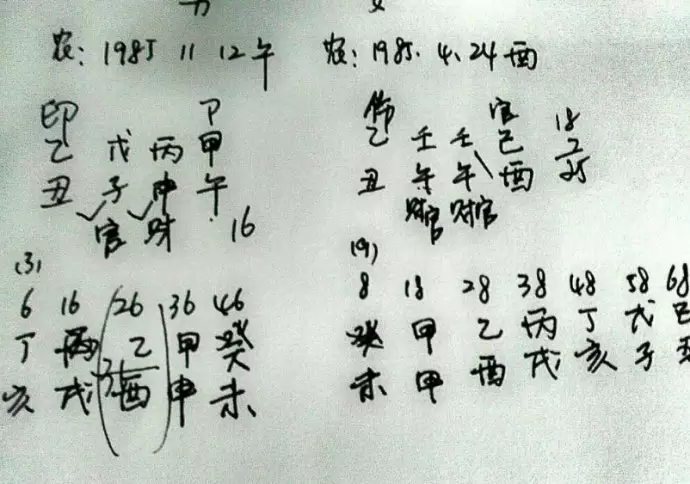 农: 1985 11 12午 农: 1985. 4. 24酉
印 P 伤 官 18
乙 戊 丙 甲 乙 壬 壬 己 7
丑 子 申 午 丑 午 午 酉 25
官 财 16 财官 财官
(3) (9)
6 16 26 36 46 8 18 28 38 48 58 68
丁 丙 乙 甲 癸 癸 甲 乙 丙 丁 戊 己
亥 戌 酉 申 未 未 甲 酉 戌 亥 子